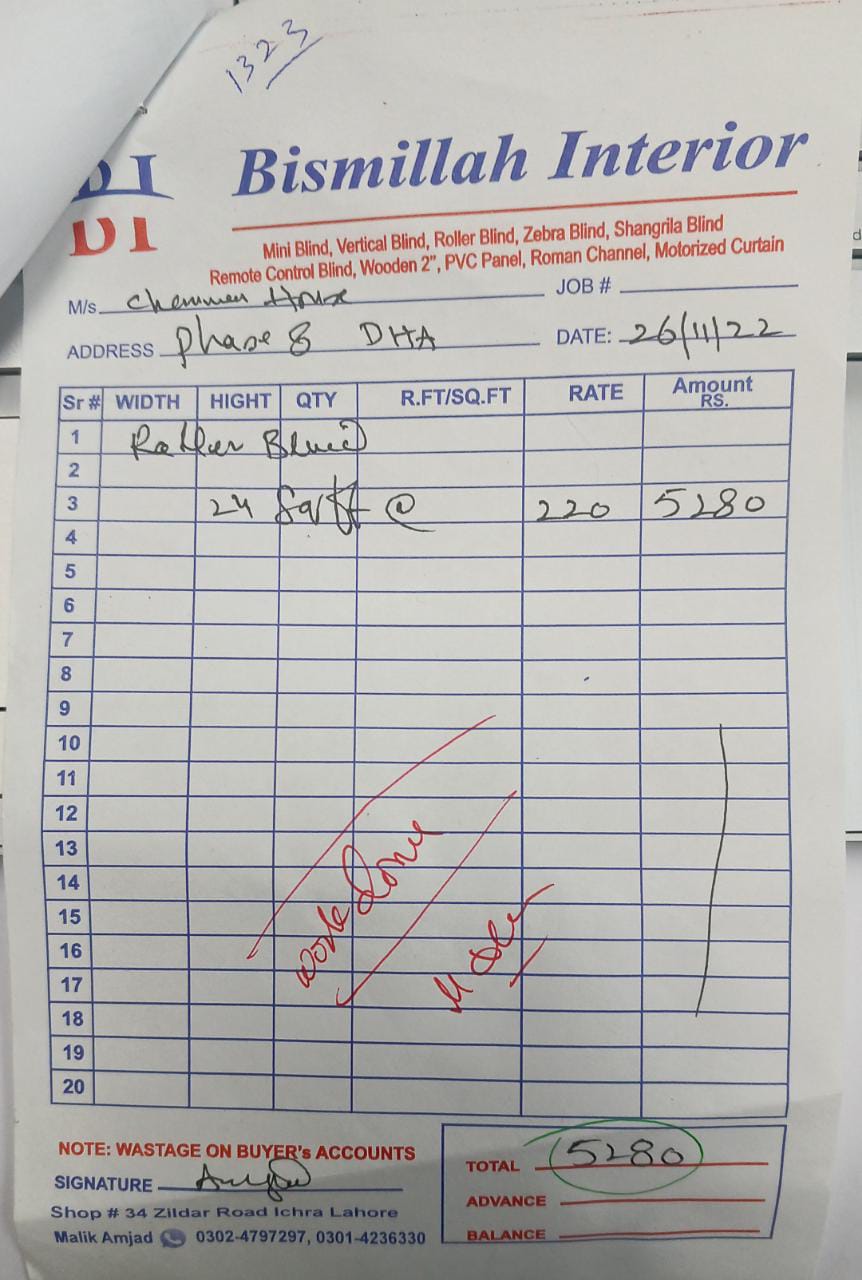 1323
DI
DI
Bismillah Interior
Mini Blind, Vertical Blind, Roller Blind, Zebra Blind, Shangrila Blind
Remote Control Blind, Wooden 2", PVC Panel, Roman Channel, Motorized Curtain
M/s. House JOB #
ADDRESS Phase 8 DHA DATE: 26/11/22
Sr # WIDTH HIGHT QTY R.FT/SQ.FT RATE Amount RS.
1 Blind
2
3 24 Sqft @ 220 5280
4
5
6
7
8
9
10
11
12
13
14
15
16
17
18
19
20
work done
NOTE: WASTAGE ON BUYER's ACCOUNTS
SIGNATURE
Shop # 34 Zildar Road Ichra Lahore
Malik Amjad 0302-4797297, 0301-4236330
TOTAL 5280
ADVANCE
BALANCE